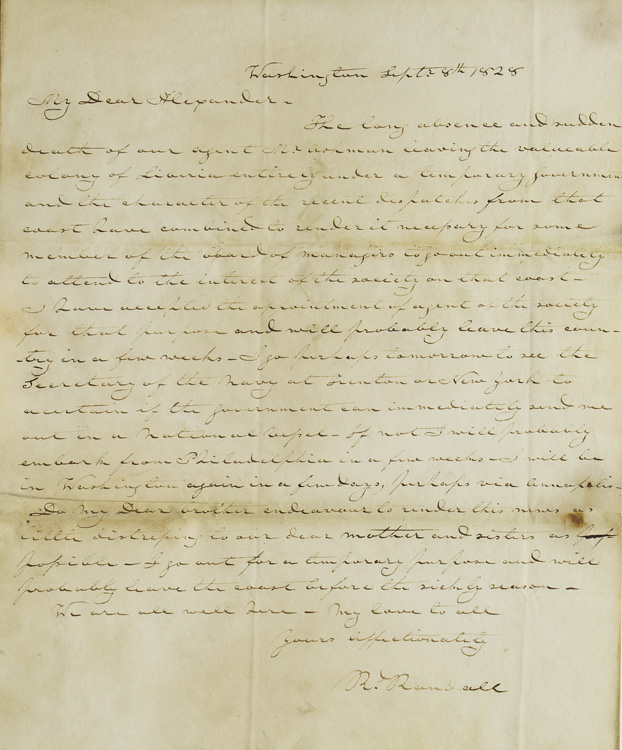 Washington Sept. 8th 1828
My Dear Alexander.
The long absence and sudden
death of our agent Mr Ashmun leaving the valueable
colony of Liberia entirely under a temporary governmen
and the character of the recent despatches from that
coast have combined to render it necessary for some
member of the board of managers to go out immediately
to attend to the interest of the society on that coast –
I have accepted the apointment of agent of the society
for that purpose and will probably leave this coun-
-try in a few weeks – I go perhaps tomorrow to see the
Secretary of the Navy at Trenton or New York to
acertain if the government can immediately send me
out in a National vessel – If not I will probably
embark from Philadelphia in a few weeks – I will be
in Washington again in a few days, perhaps via Annapolis –
Do my Dear brother endeavour to render this news as
little distressing to our dear mother and sisters as
possible – I go out for a temporary purpose and will
probably leave the coast before the sickly season –
We are all well here – My love to all
Yours affectionately
Rd. Randall